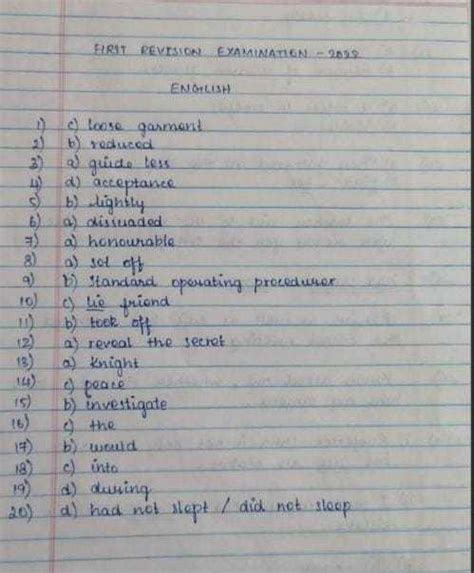 FIRST REVISION EXAMINATION - 2022
ENGLISH
1) c) loose garment
2) b) reduced
3) a) guide less
4) d) acceptance
5) b) lightly
6) a) dissuaded
7) a) honourable
8) a) set off
9) b) standard operating procedurer
10) c) lie friend
11) b) took off
12) a) reveal the secret
13) a) knight
14) c) peace
15) b) investigate
16) c) the
17) b) would
18) c) into
19) d) during
20) d) had not slept / did not sleep